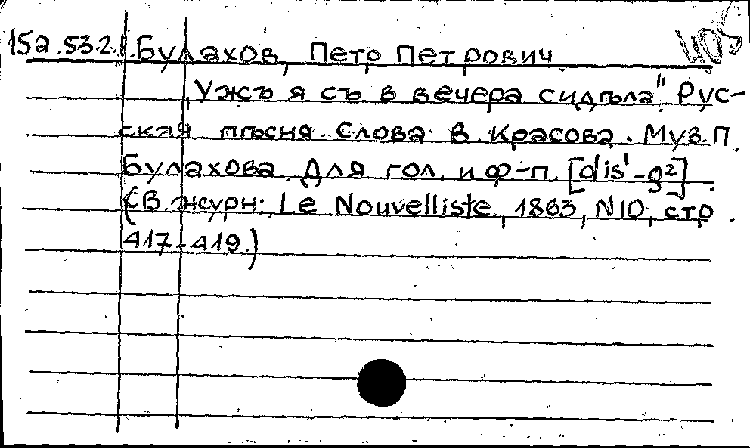 152.532. Булахов, Петр Петрович 405
„Ужъ я съ в вечера сидѣла" Рус-
ская пѣсня. Слова В. Красова. Муз П.
Булахова Для гол. и ф-п. [dis¹-g²]
(В журн: Le Nouvelliste, 1863, N10, стр.
417-419.)